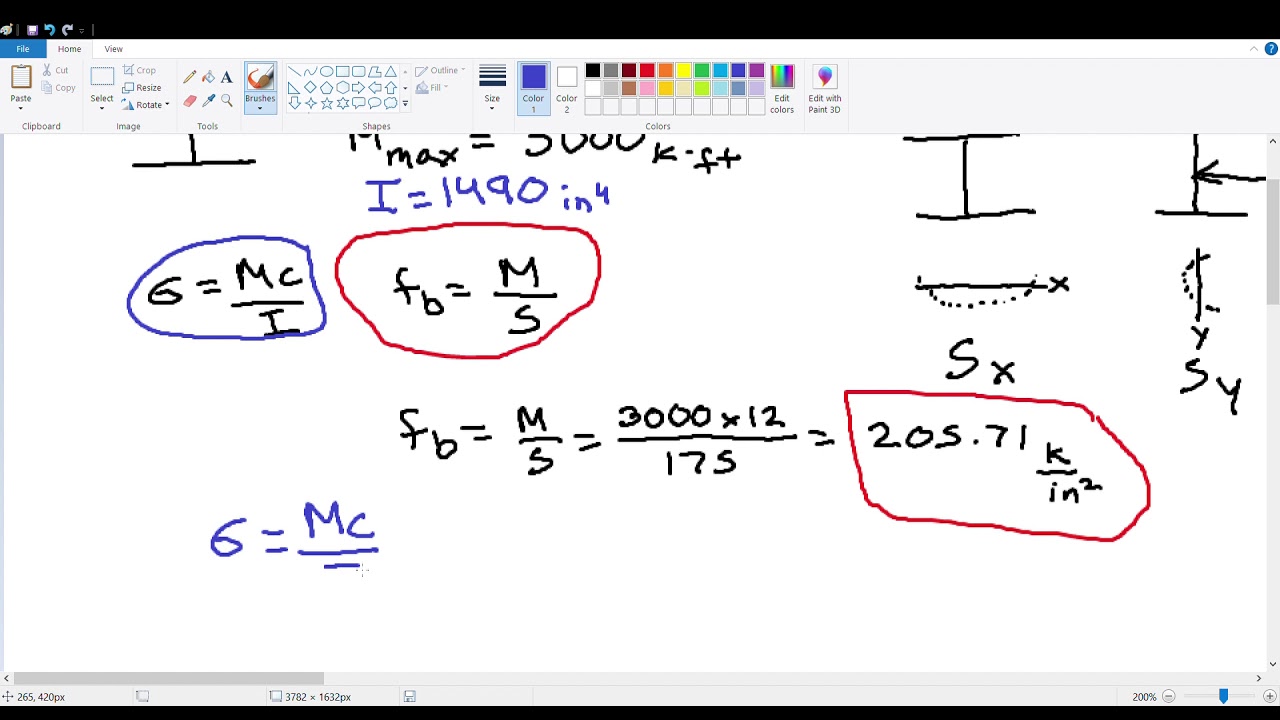 File Home View
Cut
Copy
Paste
Clipboard
Crop
Resize
Rotate
Select
Image
A
Tools
Brushes
Outline
Fill
Shapes
Size
Color 1
Color 2
Colors
Edit colors
Edit with Paint 3D
Mmax = 3000 k-ft
I = 1490 in⁴
σ = MC/I
fb = M/S
x
y
Sx
Sy
fb = M/S = 3000 x 12/175 = 205.71 k/in²
σ = MC
265, 420px
3782 × 1632px
200%